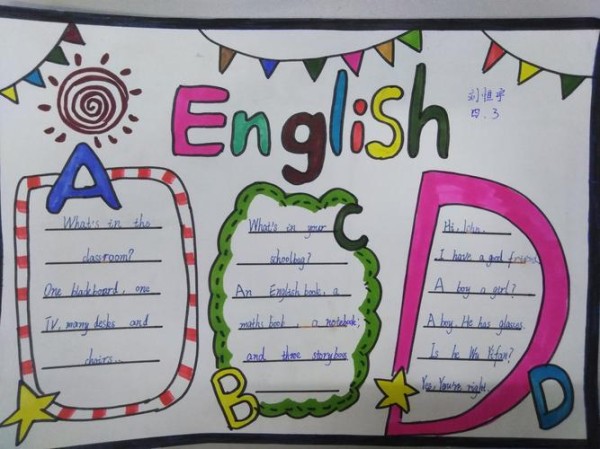 English
刘恒宇
四.3
A
What's in the
classroom?
One blackboard, one
TV, many desks and
chairs...
C
What's in your
schoolbag?
An English book, a
maths book, a notebook;
and three storybooks
B
Hi, John.
I have a good friend
A boy a girl?
A boy. He has glasses.
Is he Wu Yifan?
Yes, You're right
D